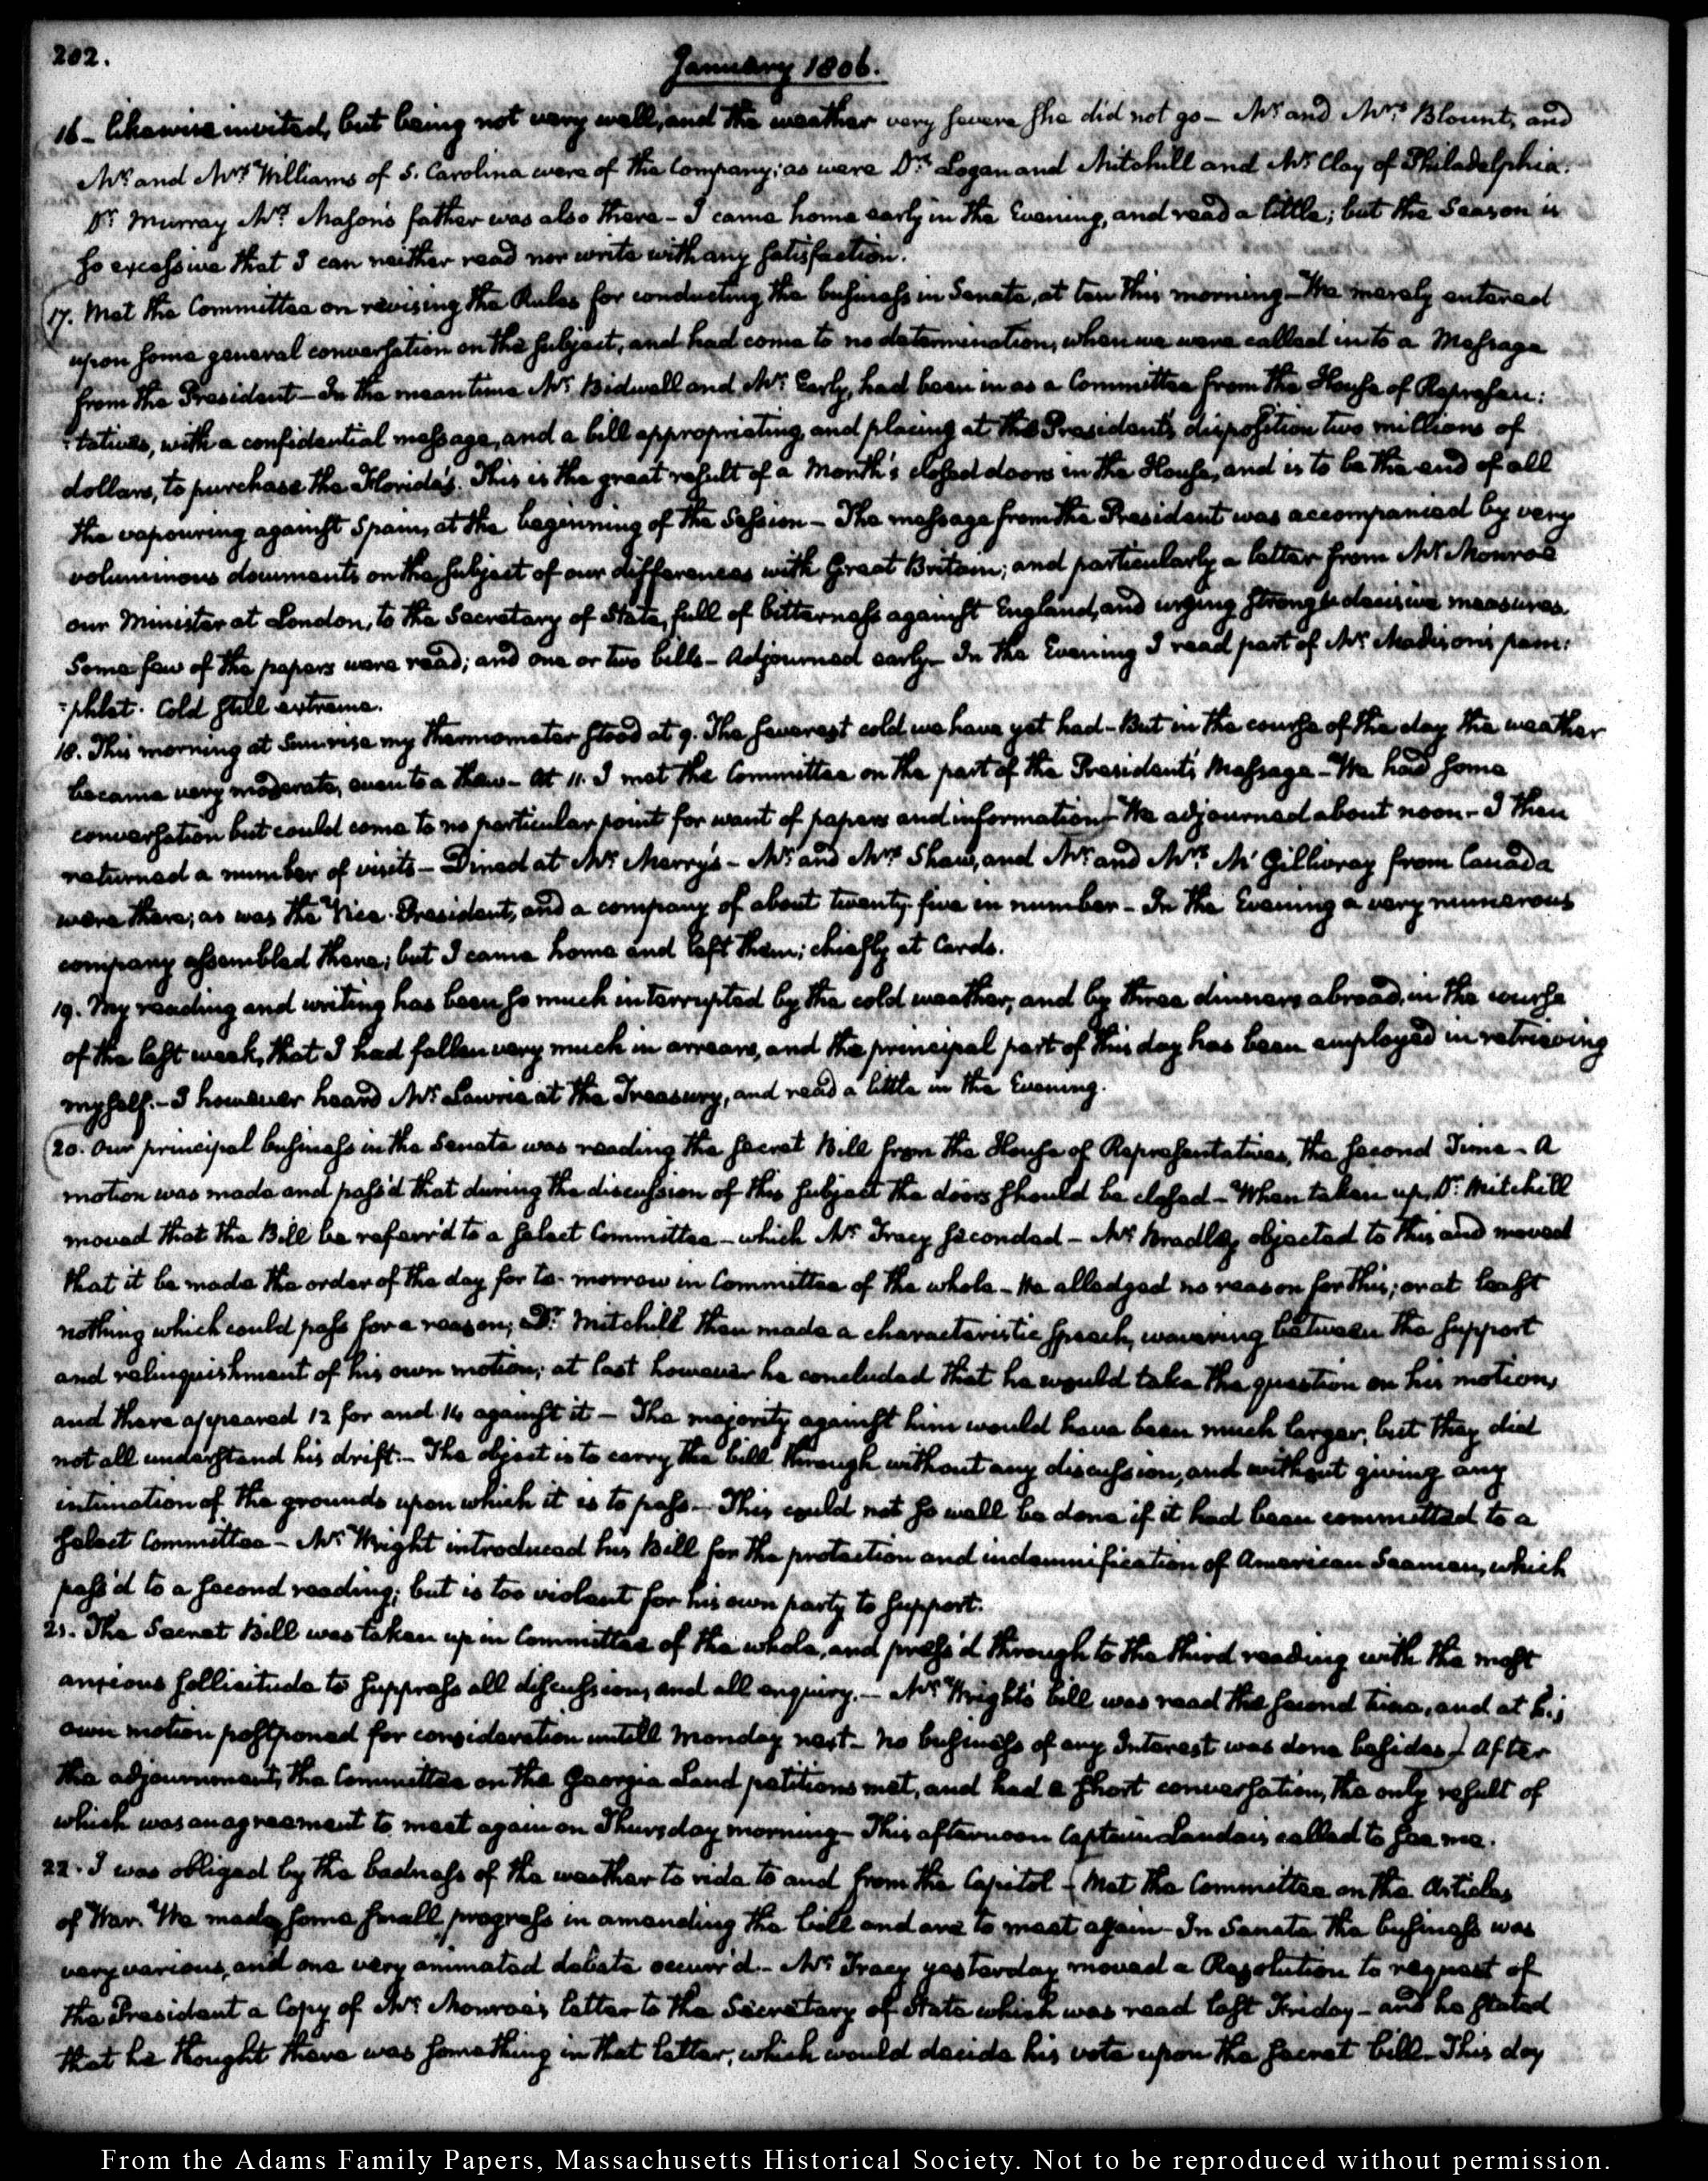 202.
January 1806.
16 - likewise invited, but being not very well, and the weather very severe she did not go - Mr. and Mrs. Blount, and
Mr. and Mrs. Williams of S. Carolina were of the Company; as were Drs. Logan and Mitchill and Mr. Clay of Philadelphia.
Dr. Murray Mrs. Mason's father was also there - I came home early in the Evening, and read a little; but the Season is
so excessive that I can neither read nor write with any satisfaction.
17. Met the Committee on revising the Rules for conducting the business in Senate, at ten this morning - We merely entered
upon some general conversation on the subject, and had come to no determination, when we were called in to a Message
from the President - In the mean time Mr. Bidwell and Mr. Early, had been in as a Committee from the House of Represen:
:tatives, with a confidential message, and a bill appropriating, and placing at the President's disposition two millions of
dollars, to purchase the Florida's. This is the great result of a Month's closed doors in the House, and is to be the end of all
the vapouring against Spain, at the beginning of the Session - The message from the President was accompanied by very
voluminous documents on the subject of our differences with Great Britain; and particularly a letter from Mr. Monroe
our Minister at London, to the Secretary of State, full of bitterness against England, and urging strong & decisive measures.
Some few of the papers were read; and one or two bills - Adjourned early - In the Evening I read part of Mr. Madison's pam:
:phlet. Cold still extreme.
18. This morning at Sunrise my Thermometer stood at 9. The severest cold we have yet had - But in the course of the day the weather
became very moderate, even to a thaw - At 11. I met the Committee on the part of the President's Message - We had some
conversation but could come to no particular point for want of papers and information) - We adjourned about noon - I then
returned a number of visits - Dined at Mr. Merry's - Mr. and Mrs. Shaw, and Mr. and Mrs. Mc.Gillivray from Canada
were there; as was the Vice-President, and a company of about twenty-five in number - In the Evening a very numerous
company assembled there; but I came home and left them; chiefly at Cards.
19. My reading and writing has been so much interrupted by the cold weather, and by three dinners abroad, in the course
of the last week, that I had fallen very much in arrears, and the principal part of this day has been employed in retrieving
myself. - I however heard Mr. Lawrie at the Treasury, and read a little in the Evening.
(20. Our principal business in the Senate was reading the secret Bill from the House of Representatives, the second Time - A
motion was made and pass'd that during the discussion of this subject the doors should be closed - When taken up, Dr. Mitchill
moved that the Bill be referr'd to a select Committee - which Mr. Tracy seconded - Mr. Bradley objected to this, and moved
that it be made the order of the day for to-morrow in Committee of the whole - He alledged no reason for this; or at least
nothing which could pass for a reason; Dr. Mitchill then made a characteristic speech, wavering between the support
and relinquishment of his own motion; at last however he concluded that he would take the question on his motion,
and there appeared 12 for and 16 against it - The majority against him would have been much larger, but they did
not all understand his drift. - The object is to carry the bill through without any discussion, and without giving any
intimation of the grounds upon which it is to pass - This could not so well be done if it had been committed to a
select Committee - Mr. Wright introduced his Bill for the protection and indemnification of American Seamen, which
pass'd to a second reading; but is too violent for his own party to support.
21. The Secret Bill was taken up in Committee of the whole, and press'd through to the third reading with the most
anxious sollicitude to suppress all discussion, and all enquiry. - Mr. Wright's bill was read the second time, and at his
own motion postponed for consideration untill Monday next - No business of any Interest was done besides) - After
the adjournment, the Committee on the Georgia Land petitions met, and had a short conversation, the only result of
which was an agreement to meet again on Thursday morning - This afternoon Captain Landais called to see me.
22. I was obliged by the badness of the weather to ride to and from the Capitol - (Met the Committee on the Articles
of War. We made some small progress in amending the bill and are to meet again - In Senate the business was
very various, and one very animated debate occurr'd. - Mr. Tracy yesterday moved a Resolution to request of
the President a Copy of Mr. Monroe's letter to the Secretary of State which was read last Friday - and he stated
that he thought there was something in that letter, which would decide his vote upon the secret bill. This day
From the Adams Family Papers, Massachusetts Historical Society. Not to be reproduced without permission.